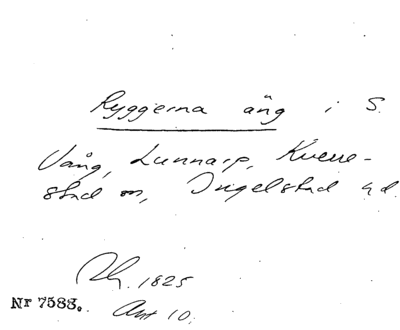 Ryggerna äng i S.
Vång, Lunnarp, Kverre-
stad sn, Ingelstad hd.
Rh. 1825
Nr 7583. Akt 10.